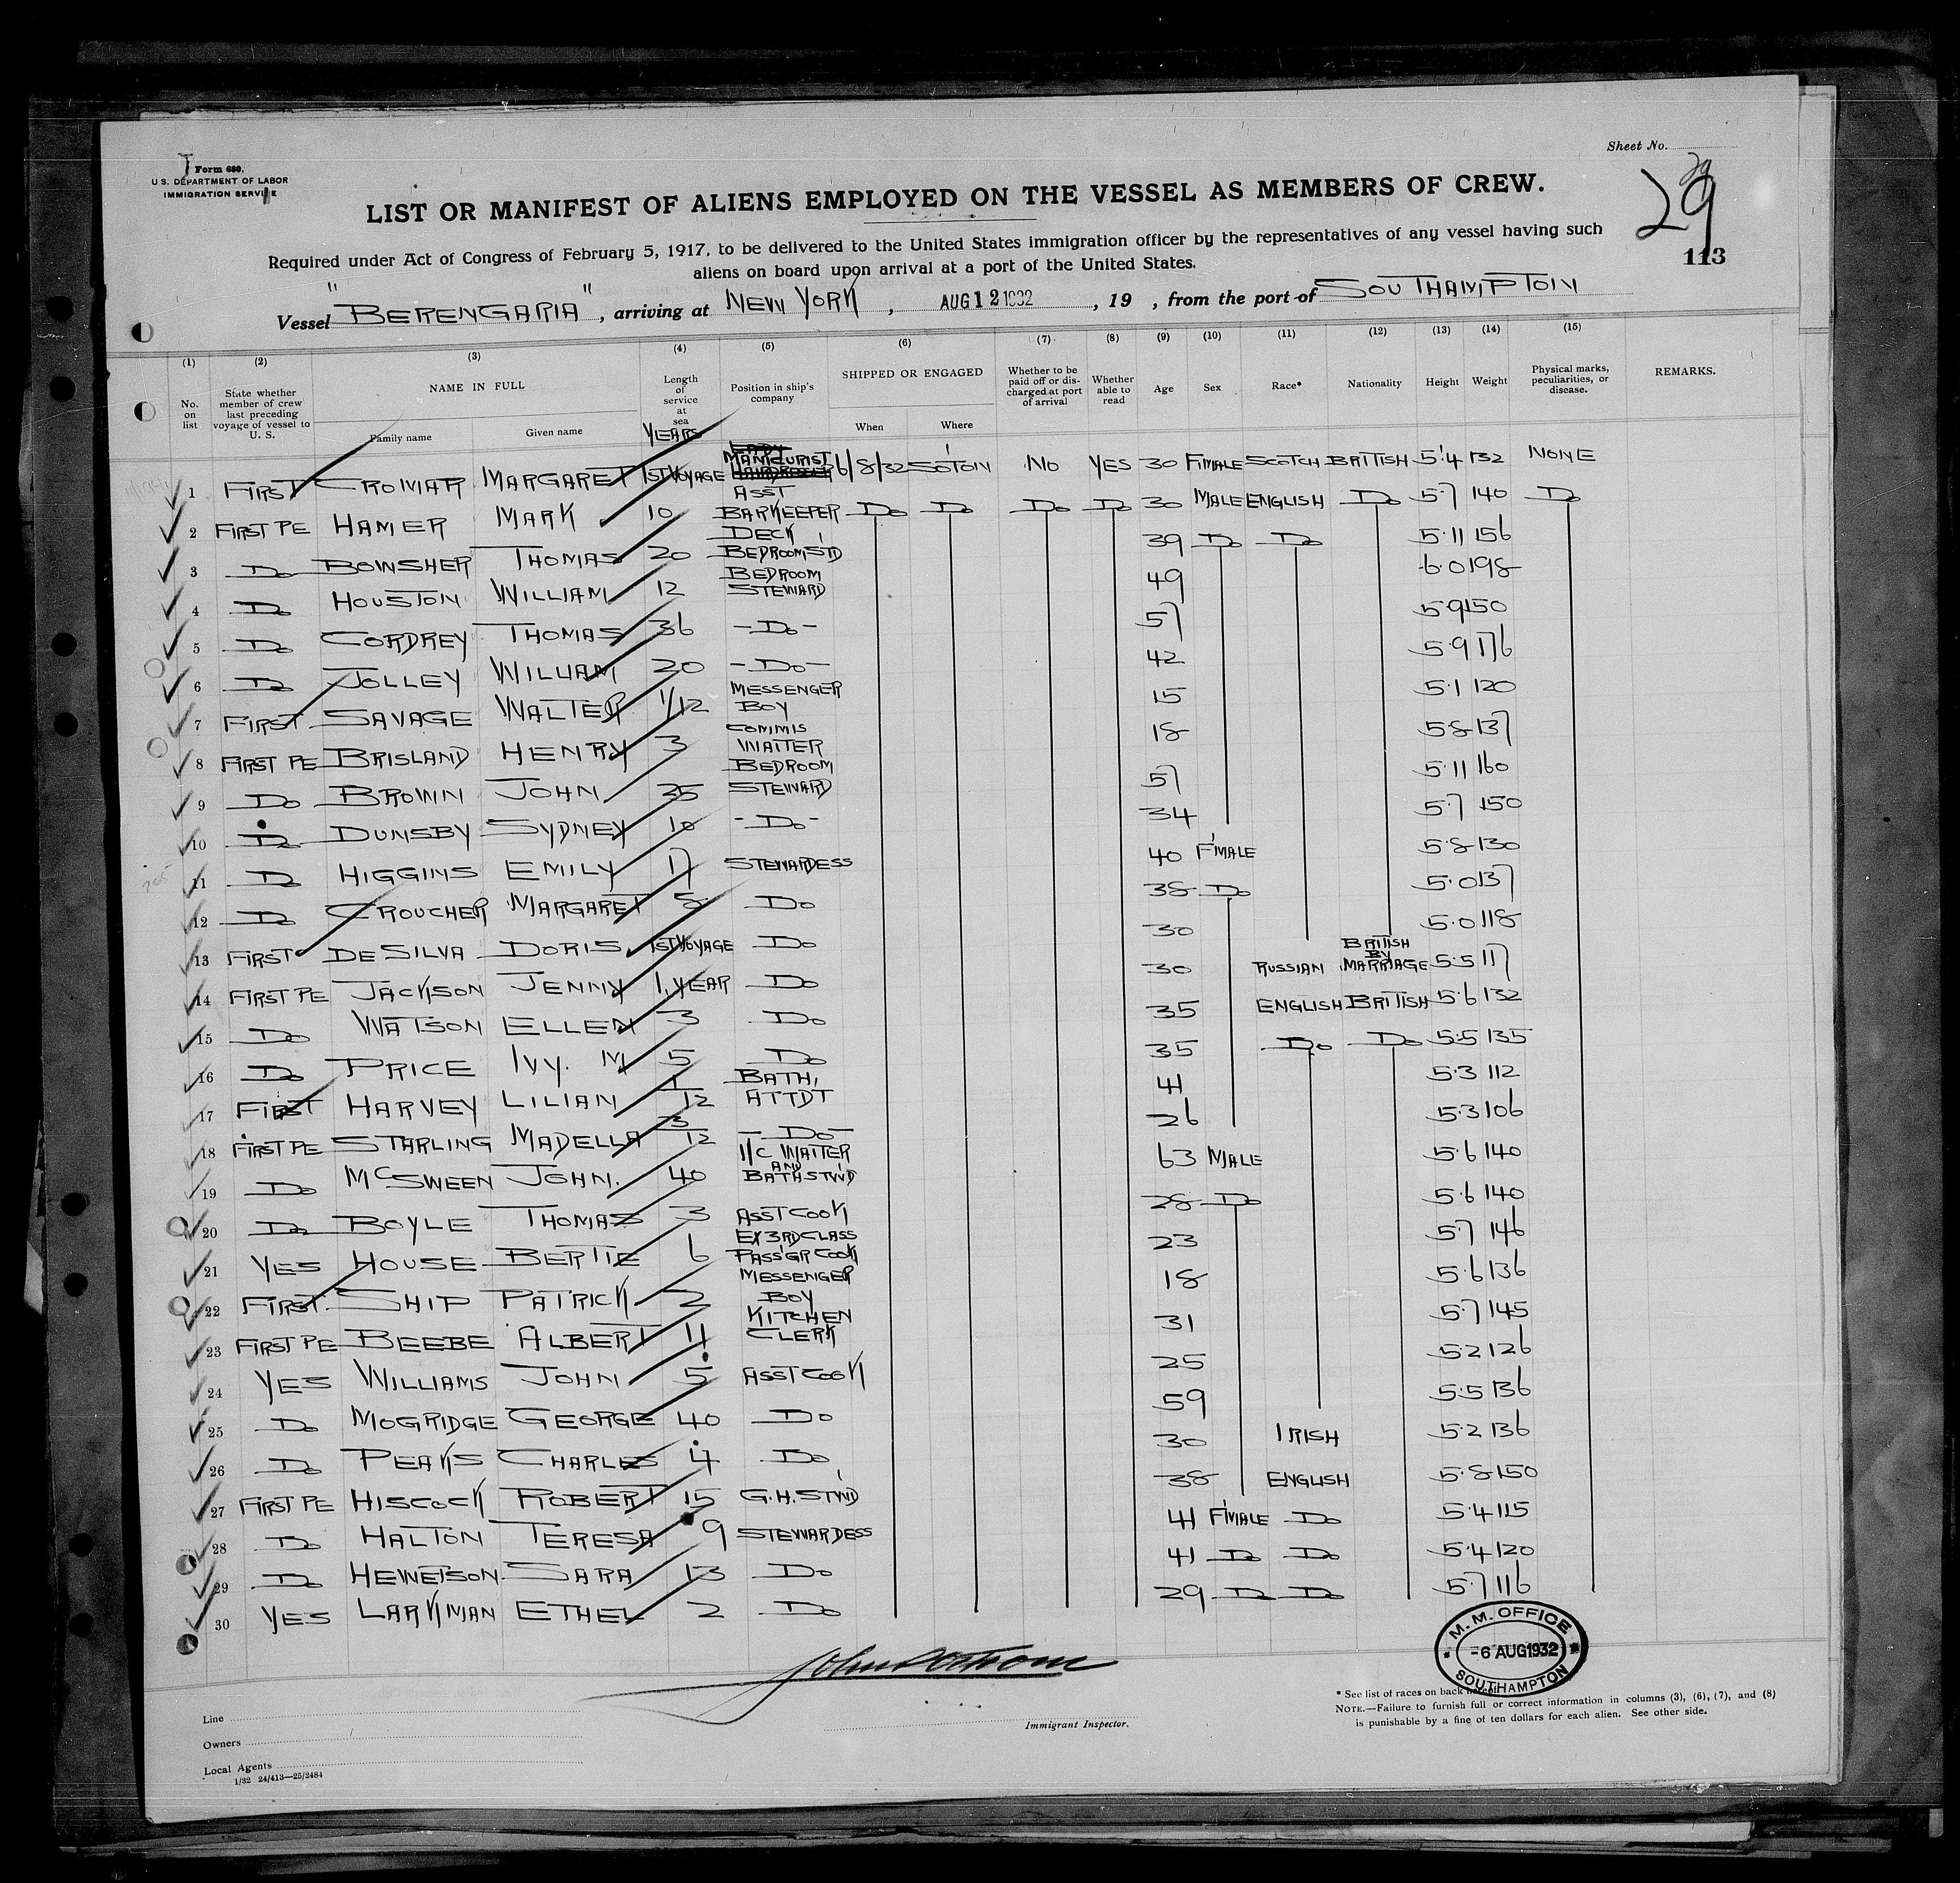 Form 680.
U.S. DEPARTMENT OF LABOR
IMMIGRATION SERVICE
Sheet No.
29
29
113
LIST OR MANIFEST OF ALIENS EMPLOYED ON THE VESSEL AS MEMBERS OF CREW.
Required under Act of Congress of February 5, 1917, to be delivered to the United States immigration officer by the representatives of any vessel having such
aliens on board upon arrival at a port of the United States.
Vessel "BERENGARIA", arriving at NEW YORK, AUG 12 1932, 19 , from the port of SOUTHAMPTON
(1) (2) (3) (4) (5) (6) (7) (8) (9) (10) (11) (12) (13) (14) (15)
No. on list State whether member of crew last preceding voyage of vessel to U. S. NAME IN FULL Family name Given name Length of service at sea YEARS Position in ship's company SHIPPED OR ENGAGED When Where Whether to be paid off or discharged at port of arrival Whether able to read Age Sex Race* Nationality Height Weight Physical marks, peculiarities, or disease. REMARKS.
1 FIRST CROMAR MARGARET 1ST VOYAGE MANICURIST 6/8/32 SO'TON NO YES 30 F'MALE SCOTCH BRITISH 5'4 132 NONE
2 FIRST PE HAMER MARK 10 ASST BARKEEPER Do Do Do Do 30 MALE ENGLISH Do 5.7 140 Do
3 Do BOWSHER THOMAS 20 DECK BEDROOM ST'D 39 Do Do 5.11 156
4 Do HOUSTON WILLIAM 12 BEDROOM STEWARD 49 6.0 198
5 Do CORDREY THOMAS 36 -Do- 57 5.9 150
6 Do JOLLEY WILLIAM 20 -Do- 42 5.9 176
7 FIRST SAVAGE WALTER 1/12 MESSENGER BOY 15 5.1 120
8 FIRST PE BRISLAND HENRY 3 COMMIS WAITER 18 5.8 137
9 Do BROWN JOHN 35 BEDROOM STEWARD 57 5.11 160
10 Do DUNSBY SYDNEY 10 -Do- 34 5.7 150
11 Do HIGGINS EMILY 17 STEWARDESS 40 F'MALE 5.8 130
12 Do CROUCHER MARGARET 5 Do 38 Do 5.0 137
13 FIRST DE SILVA DORIS 1ST VOYAGE Do 30 5.0 118
14 FIRST PE JACKSON JENNY 1 YEAR Do 30 RUSSIAN BRITISH BY MARRIAGE 5.5 117
15 Do WATSON ELLEN 3 Do 35 ENGLISH BRITISH 5.6 132
16 Do PRICE IVY. M 5 Do 35 Do Do 5.5 135
17 FIRST HARVEY LILIAN 1/12 BATH, ATTDT 41 5.3 112
18 FIRST PE STARLING MADELLA 3/12 -Do- 26 5.3 106
19 Do McSWEEN JOHN. 40 1/C WAITER AND BATH STW'D 63 MALE 5.6 140
20 Do BOYLE THOMAS 3 ASST COOK 28 Do 5.6 140
21 YES HOUSE BERTIE 6 EX 3RD CLASS PASS'GR COOK 23 5.7 146
22 FIRST SHIP PATRICK 2 MESSENGER BOY 18 5.6 136
23 FIRST PE BEEBE ALBERT 11 KITCHEN CLERK 31 5.7 145
24 YES WILLIAMS JOHN 5 ASST COOK 25 5.2 126
25 Do MOGRIDGE GEORGE 40 Do 59 5.5 136
26 Do PEAKS CHARLES 4 Do 30 IRISH 5.2 136
27 FIRST PE HISCOCK ROBERT 15 G.H. STW'D 38 ENGLISH 5.8 150
28 Do HALTON TERESA 9 STEWARDESS 41 F'MALE Do 5.4 115
29 Do HEWETSON SARA 13 Do 41 Do Do 5.4 120
30 YES LARKMAN ETHEL 2 Do 29 Do Do 5.7 116
M. M. OFFICE
-6 AUG 1932
SOUTHAMPTON
Line
Owners
Local Agents
1/32 24/413—25/2484
Immigrant Inspector.
* See list of races on back hereof.
NOTE.—Failure to furnish full or correct information in columns (3), (6), (7), and (8)
is punishable by a fine of ten dollars for each alien. See other side.